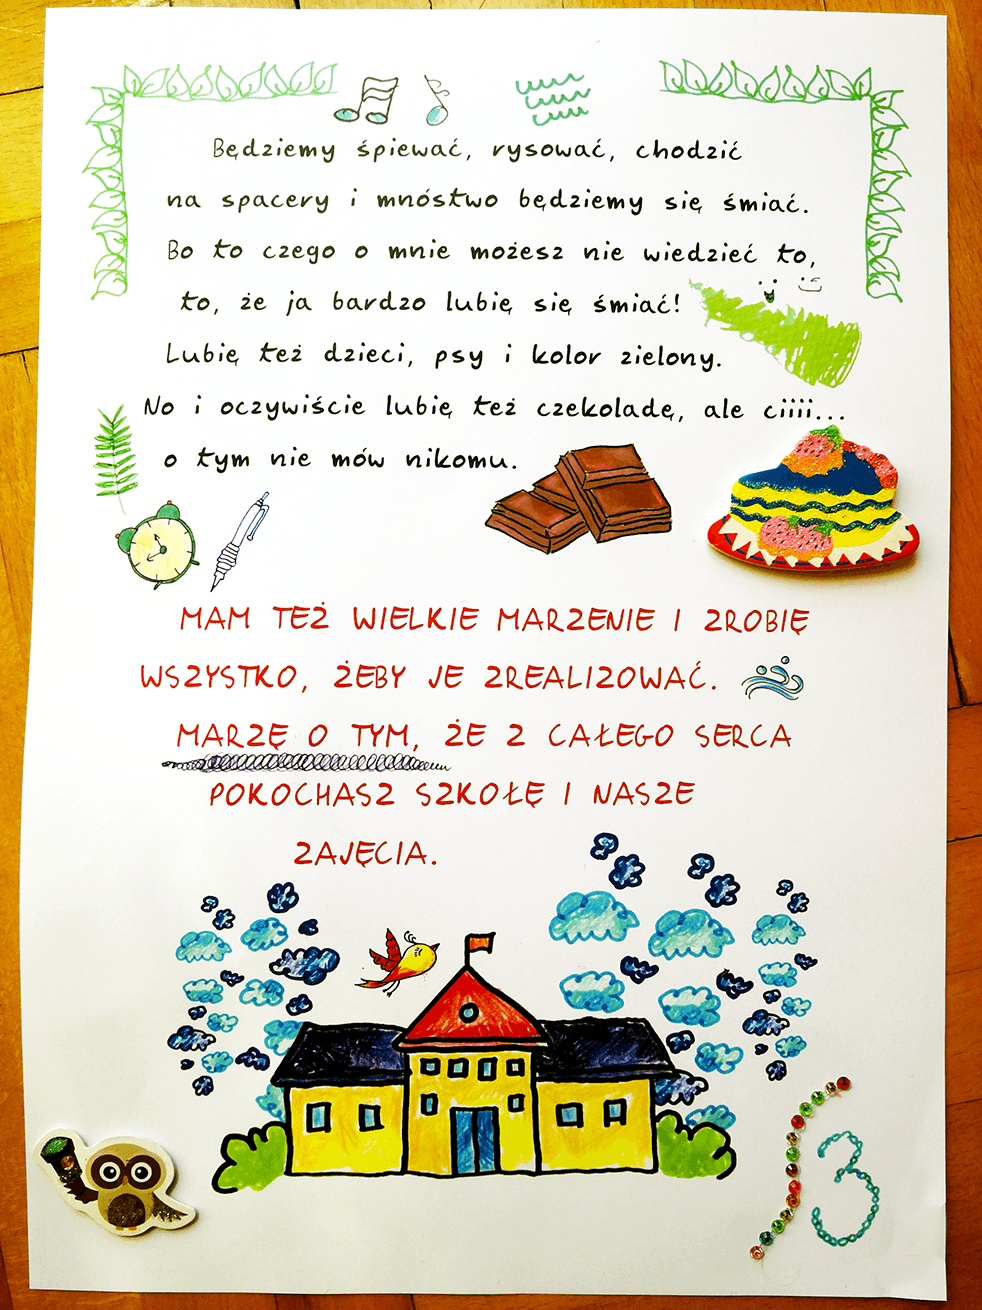 Będziemy śpiewać, rysować, chodzić
na spacery i mnóstwo będziemy się śmiać.
Bo to czego o mnie możesz nie wiedzieć to,
to, że ja bardzo lubię się śmiać!
Lubię też dzieci, psy i kolor zielony.
No i oczywiście lubię też czekoladę, ale ciiii...
o tym nie mów nikomu.
MAM TEŻ WIELKIE MARZENIE I ZROBIĘ
WSZYSTKO, ŻEBY JE ZREALIZOWAĆ.
MARZĘ O TYM, ŻE Z CAŁEGO SERCA
POKOCHASZ SZKOŁĘ I NASZE
ZAJĘCIA.
3